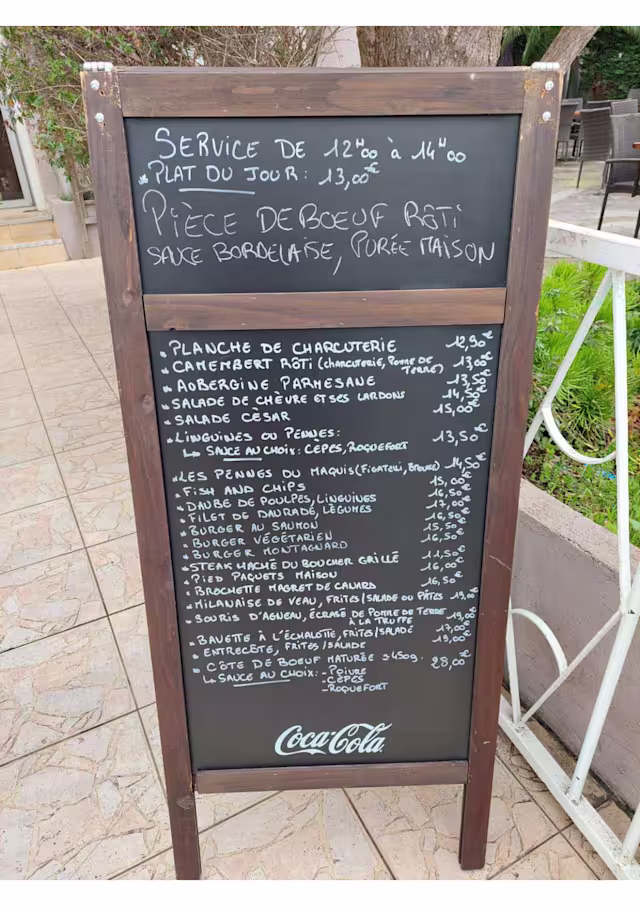 SERVICE DE 12H00 à 14H00
PLAT DU JOUR: 13,00€
PIÈCE DE BOEUF RÔTI
SAUCE BORDELAISE, PURÉE MAISON
PLANCHE DE CHARCUTERIE 12,90€
CAMEMBERT RÔTI (CHARCUTERIE, POMME DE TERRE) 13,00€
AUBERGINE PARMESANE 13,50€
SALADE DE CHÈVRE ET SES LARDONS 14,50€
SALADE CÈSAR 15,00€
LINGUINES OU PENNES: 13,50€
↳ SAUCE AU CHOIX: CÈPES, ROQUEFORT
LES PENNES DU MAQUIS (FIGATELLI, BROUSSE) 14,50€
FISH AND CHIPS 15,00€
DAUBE DE POULPES, LINGUINES 16,50€
FILET DE DAURADE, LÉGUMES 17,00€
BURGER AU SAUMON 16,50€
BURGER VÉGÉTARIEN 15,50€
BURGER MONTAGNARD 16,50€
STEAK HACHÉ DU BOUCHER GRILLÉ 11,50€
PIED PAQUETS MAISON 16,00€
BROCHETTE MAGRET DE CANARD 16,50€
MILANAISE DE VEAU, FRITES/SALADE OU PÂTES 19,00€
SOURIS D'AGNEAU, ÉCRASÉ DE POMME DE TERRE 19,00€
À LA TRUFFE
BAVETTE À L'ÉCHALOTTE, FRITES/SALADE 17,00€
ENTRECÔTE, FRITES/SALADE 19,00€
CÔTE DE BOEUF MATURÉE ±450g. 28,00€
↳ SAUCE AU CHOIX: -POIVRE
-CÈPES
-ROQUEFORT
Coca-Cola